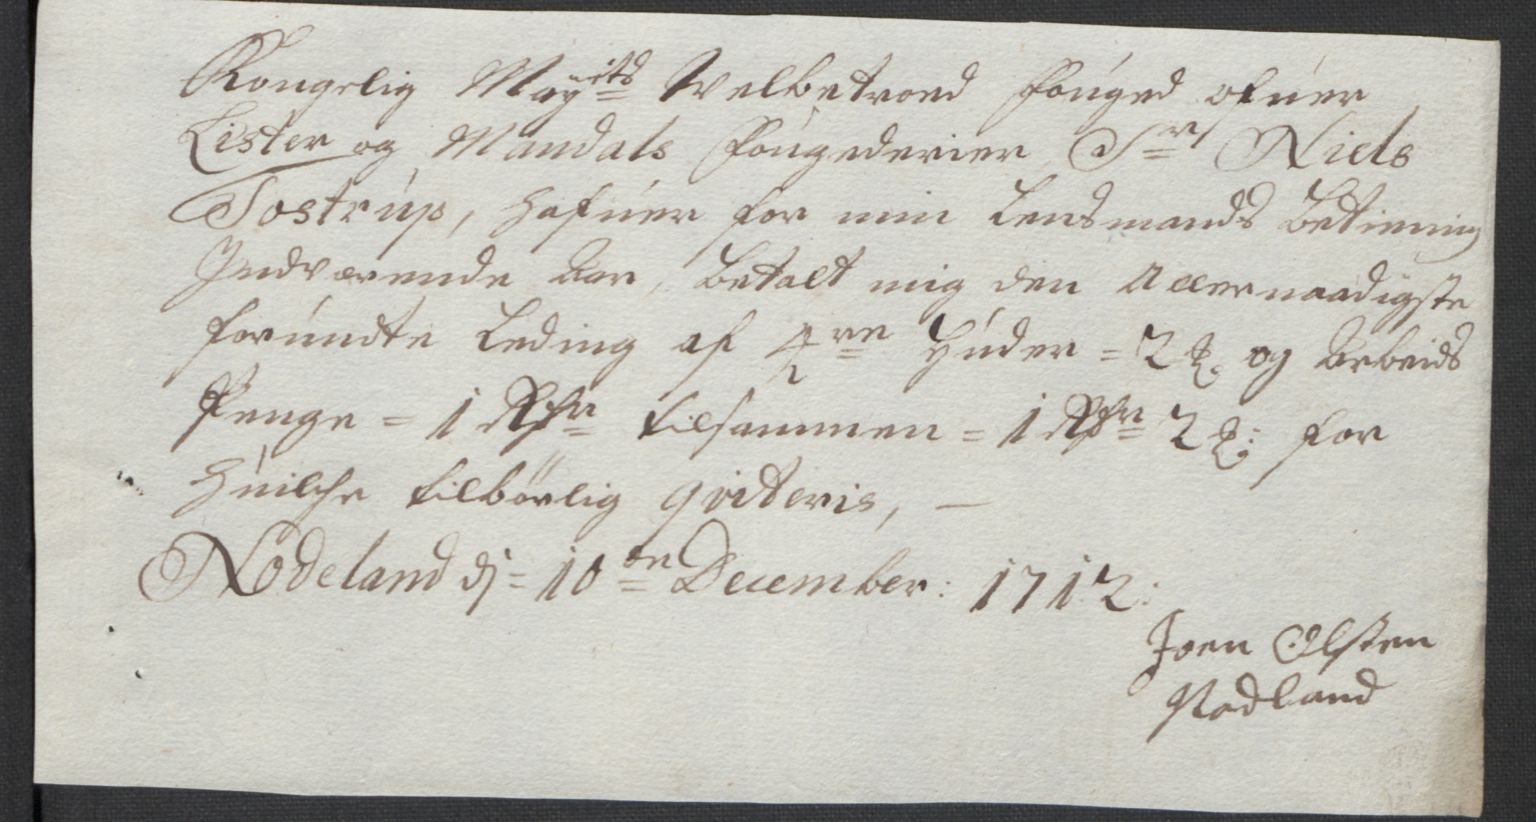 Kongelig Mayˢ ᵗˢ Welbetroed Fouged ofuer
Lister og Mandals Fougederier Sr Niels
Tostrup, hafuer for min Lensmands Betienning
Indværende Aar, betalt mig den Allernaadigste
forundte Leding af 4re Huder = 2 og Arbeids
Penge = 1 Rdr tilsammen = 1 Rdr 2 for
huilche tilbørlig qviteris, —
Nodeland dj = 10de December: 1712:
Joen Olsen
Nodland